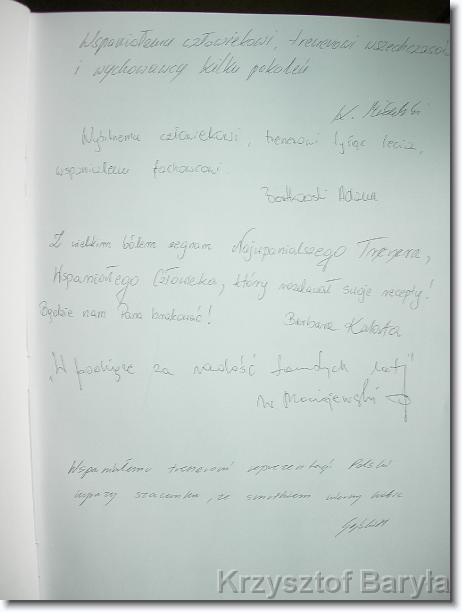 Wspaniałemu człowiekowi, trenerowi wszechczasów
i wychowawcy kilku pokoleń
W.
Wybitnemu człowiekowi, trenerowi tysiąc lecia,
wspaniałemu fachowcowi.
Bartkowski Adam
Z wielkim bólem żegnam Najwspanialszego Trenera,
Wspaniałego Człowieka, który rozdawał swoje recepty!
Będzie nam Pana brakować!
Barbara
"W podzięce za radość tamtych lat"
Maciejewski
Wspaniałemu trenerowi reprezentacji Polski
wyrazy szacunku, ze smutkiem wierny kibic
Krzysztof Baryla